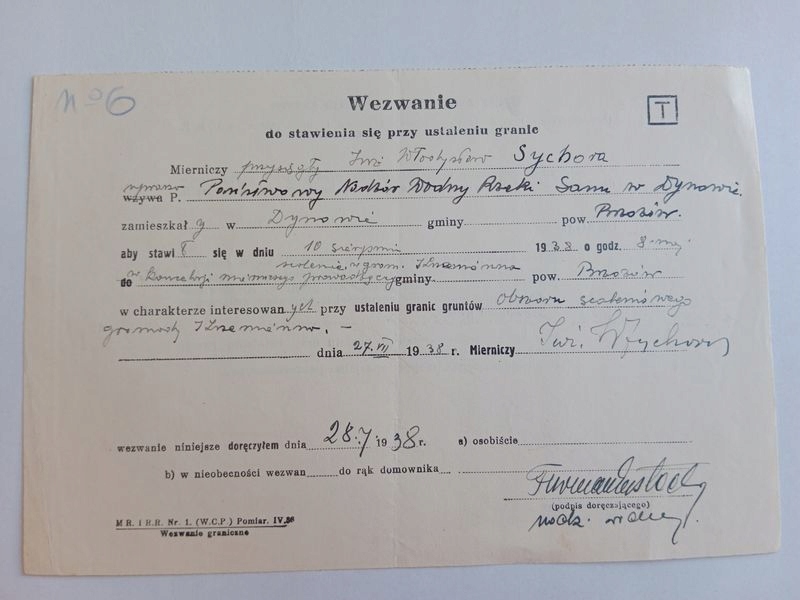 No 6
Wezwanie
T
do stawienia się przy ustaleniu granic
Mierniczy przysięgły Inż Władysław Sychora
uprasza
wzywa P. Państwowy Nadzór Wodny Rzeki Sanu w Dynowie
zamieszkał y w Dynowie gminy pow. Brzozów.
aby stawił się w dniu 10 sierpnia 1938 o godz. 8-mej
scalenie gram.
do w kancelarji mierniczego prowadzącego gminy pow. Brzozów
w charakterze interesowanych przy ustaleniu granic gruntów obszaru scaleniowego
gromady
dnia 27.VII 1938 r. Mierniczy Inż. WSychora
wezwanie niniejsze doręczyłem dnia 28.7 1938 r. a) osobiście
b) w nieobecności wezwan do rąk domownika
(podpis doręczającego)
nadz.
M R. i R.R. Nr. 1. (W.C.P) Pomiar. IV.36
Wezwanie graniczne